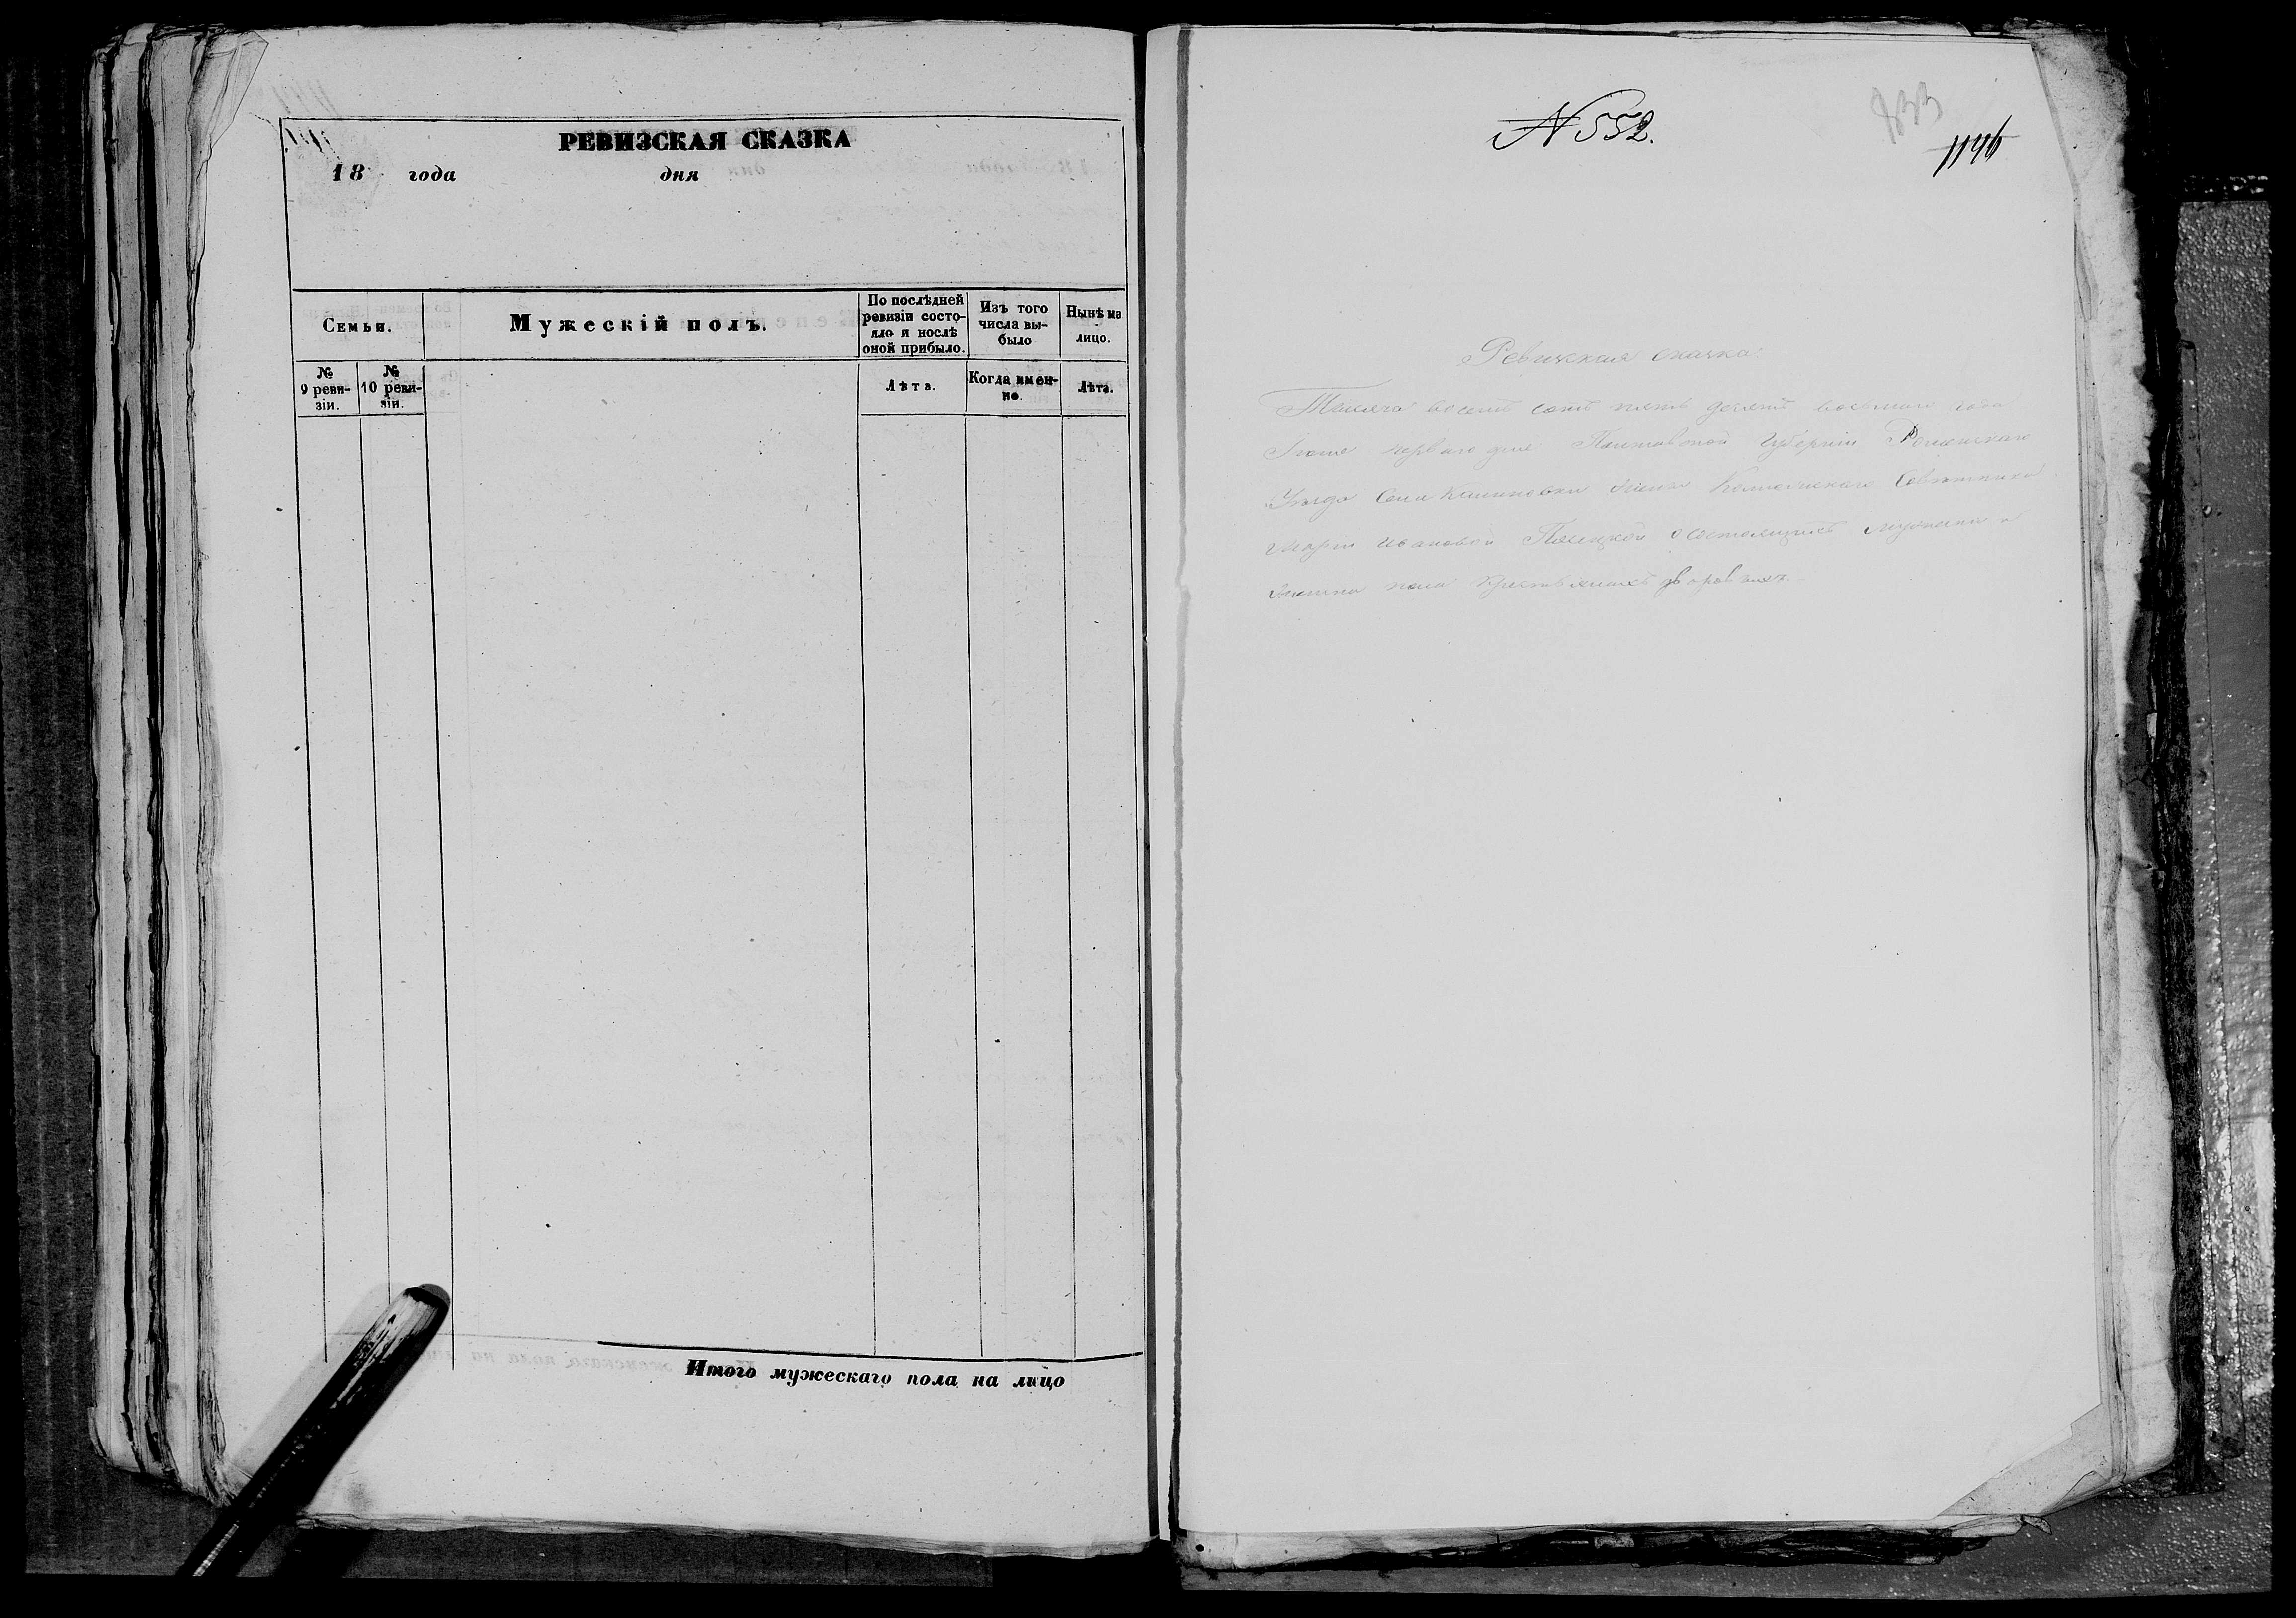 РЕВИЗСКАЯ СКАЗКА
18 года дня
Семьи.
Мужескій полъ.
По послѣдней ревизіи состо-
яло и послѣ
оной прибыло.
Изъ того
числа вы-
было
Нынѣ на
лицо.
№
9 реви-
зіи.
№
10 реви-
зіи.
Лѣта.
Когда имен-
но.
Лѣта.
Итого мужескаго пола на лицо
N 552.
833
1146
Ревизская сказка
Тысяча восемь сотъ пять десятъ восьмого года
перваго дня Полтавской Губерніи Роменскаго
Уезда Села жены Советника
Марьи Ивановой о состоящихъ мужеска и
женска пола крестьянахъ